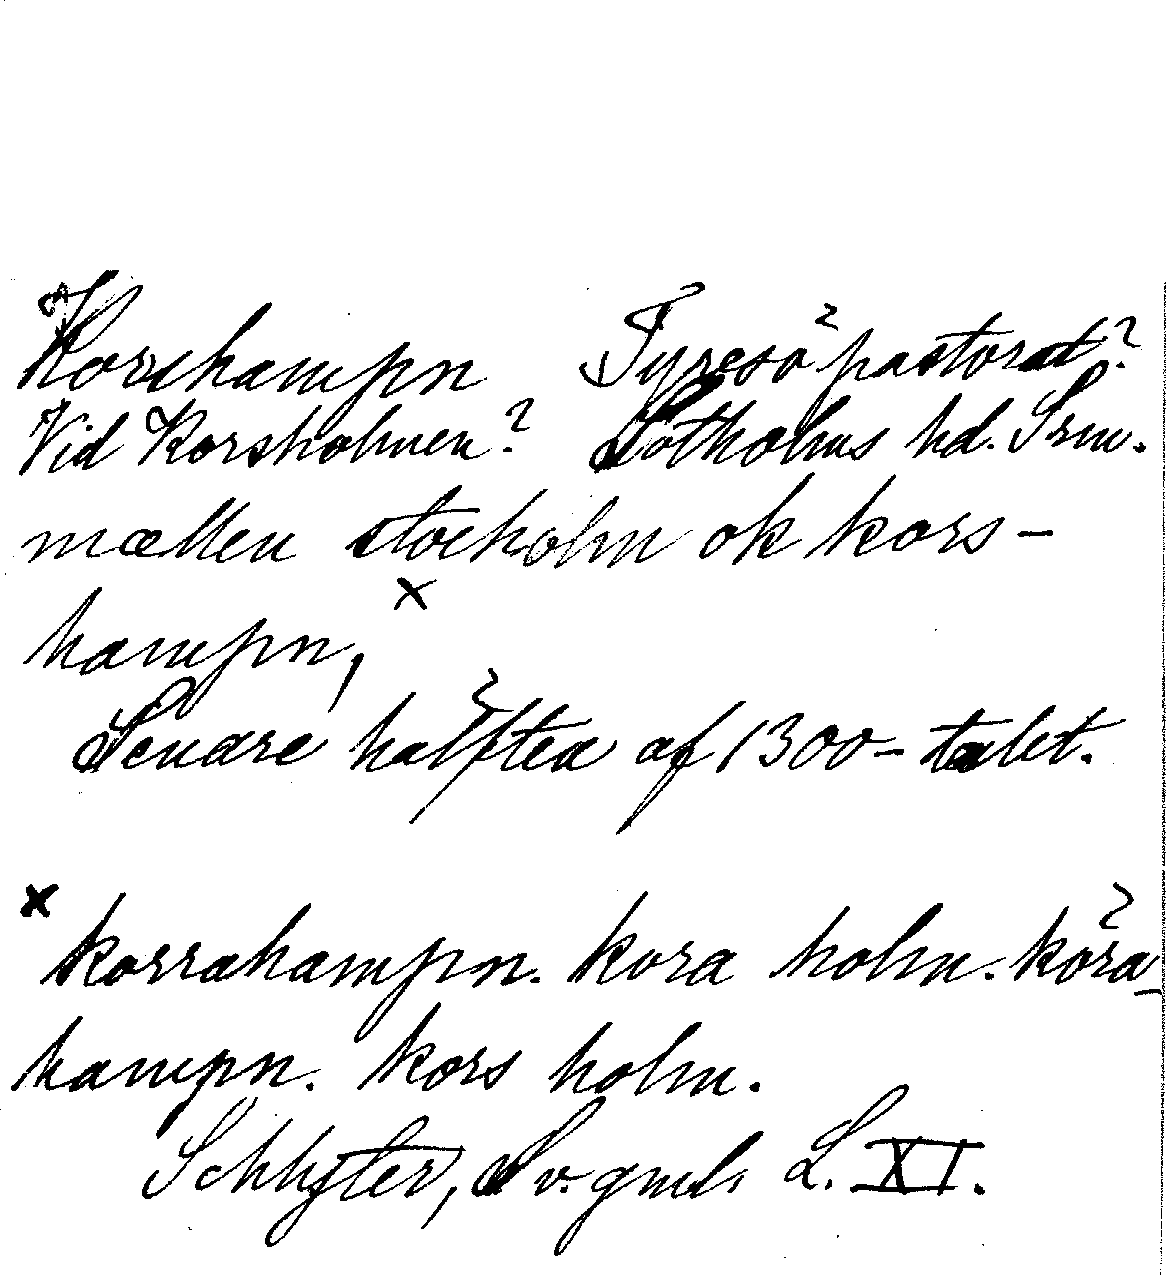 Korshampn Tyresö pastorat?
Vid Korsholmen? Sotholms hd. Srm.
mællen stockholm ok kors-
hampn, x
Senare hälften af 1300-talet.
x korrahampn. kora holm. köra-
hampn. kors holm.
Schlyter, Sv. gml. L. XI.